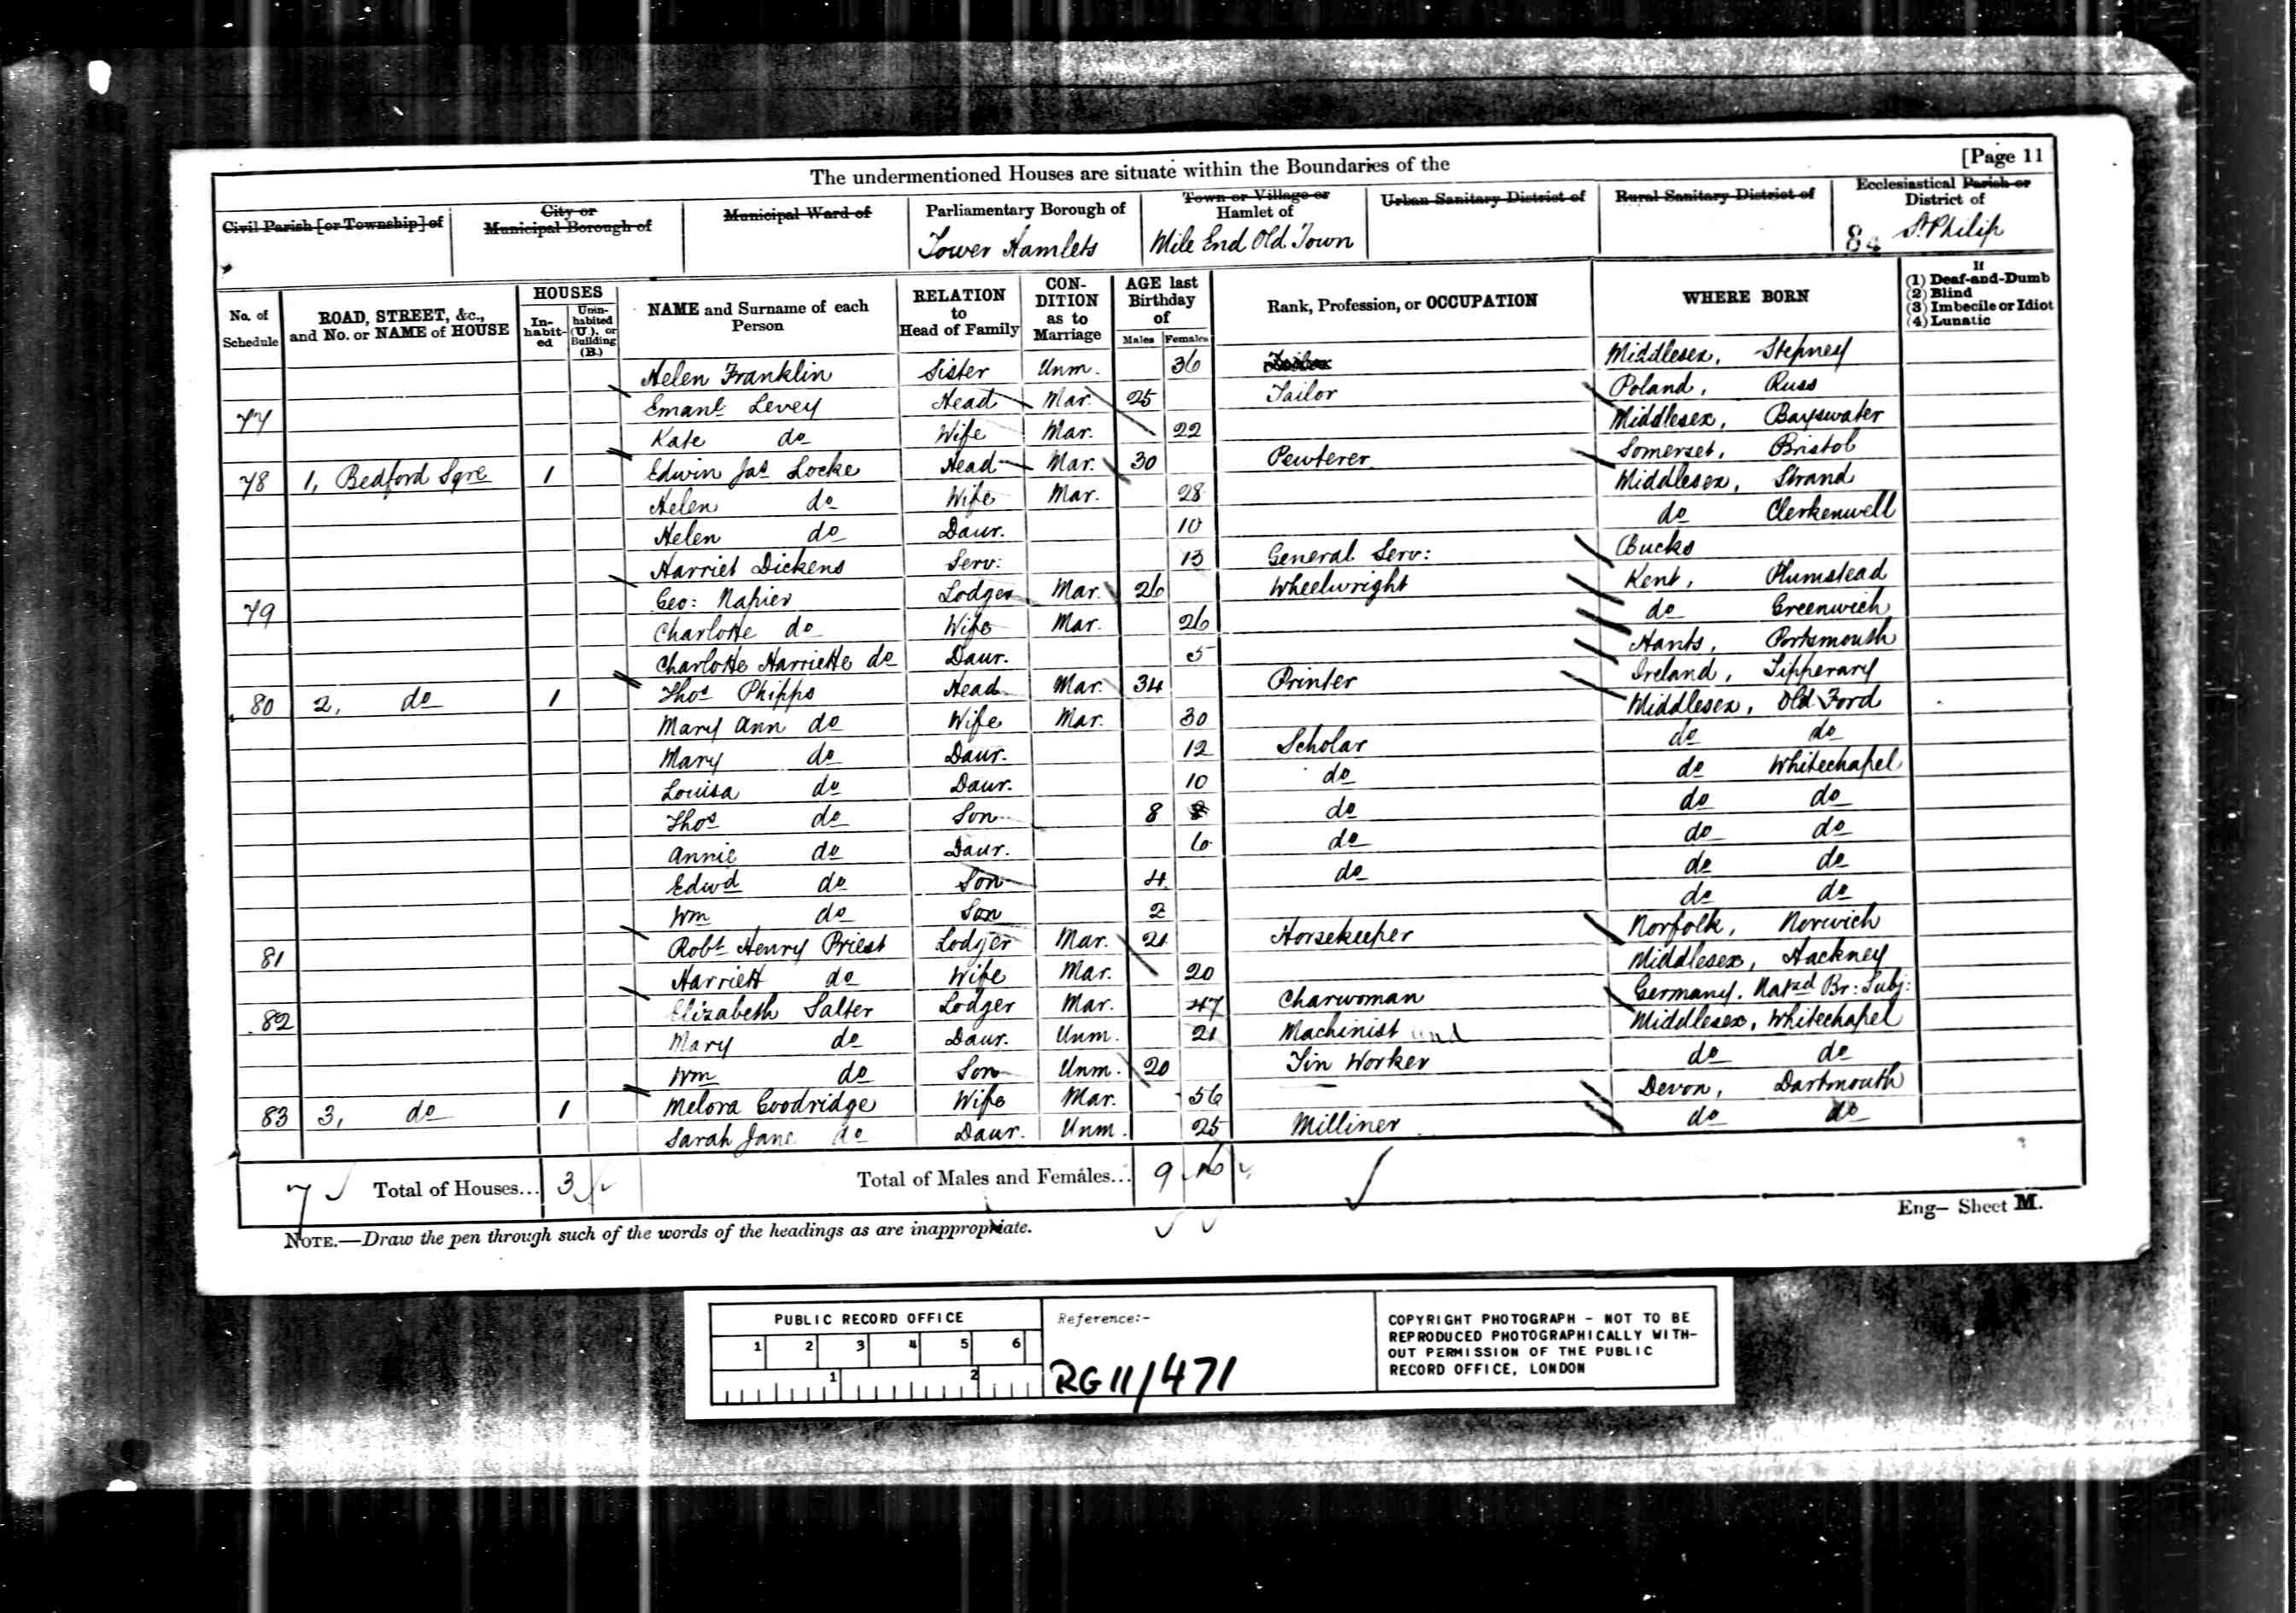 The undermentioned Houses are situate within the Boundaries of the [Page 11
Civil Parish [or Township] of City or Municipal Borough of Municipal Ward of Parliamentary Borough of Tower Hamlets Town or Village or Hamlet of Mile End Old Town Urban Sanitary District of Rural Sanitary District of Ecclesiastical Parish or District of St. Philip 84
No. of Schedule ROAD, STREET, &c., and No. or NAME of HOUSE HOUSES Inhabited Uninhabited (U.), or Building (B.) NAME and Surname of each Person RELATION to Head of Family CONDITION as to Marriage AGE last Birthday of Males Females Rank, Profession, or OCCUPATION WHERE BORN If (1) Deaf-and-Dumb (2) Blind (3) Imbecile or Idiot (4) Lunatic
Helen Franklin Sister Unm. 36 Middlesex, Stepney
77 Emanl Levey Head Mar. 25 Tailor Poland, Russ
Kate do Wife Mar. 22 Middlesex, Bayswater
78 1, Bedford Sqre 1 Edwin Jas Locke Head Mar. 30 Pewterer Somerset, Bristol
Helen do Wife Mar. 28 Middlesex, Strand
Helen do Daur. 10 do Clerkenwell
Harriet Dickens Serv: 13 General Serv: Bucks
79 Geo: Napier Lodger Mar. 26 Wheelwright Kent, Plumstead
Charlotte do Wife Mar. 26 do Greenwich
Charlotte Harriette do Daur. 5 Hants, Portsmouth
80 2, do 1 Thos Phipps Head Mar. 34 Printer Ireland, Tipperary
Mary Ann do Wife Mar. 30 Middlesex, Old Ford
Mary do Daur. 12 Scholar do do
Louisa do Daur. 10 do do Whitechapel
Thos do Son 8 do do do
Annie do Daur. 6 do do do
Edwd do Son 4 do do do
Wm do Son 2 do do
81 Robt Henry Priest Lodger Mar. 21 Horsekeeper Norfolk, Norwich
Harriett do Wife Mar. 20 Middlesex, Hackney
82 Elizabeth Salter Lodger Mar. 47 Charwoman Germany. Natzd Br: Subj:
Mary do Daur. Unm. 21 Machinist Middlesex, Whitechapel
Wm do Son Unm. 20 Tin Worker do do
83 3, do 1 Melora Goodridge Wife Mar. 56 — Devon, Dartmouth
Sarah Jane do Daur. Unm. 25 Milliner do do
7 Total of Houses... 3 Total of Males and Females... 9 16
NOTE.—Draw the pen through such of the words of the headings as are inappropriate.
Eng— Sheet M.
PUBLIC RECORD OFFICE
1 2 3 4 5 6
1 2
Reference:-
RG 11/471
COPYRIGHT PHOTOGRAPH - NOT TO BE
REPRODUCED PHOTOGRAPHICALLY WITH-
OUT PERMISSION OF THE PUBLIC
RECORD OFFICE, LONDON